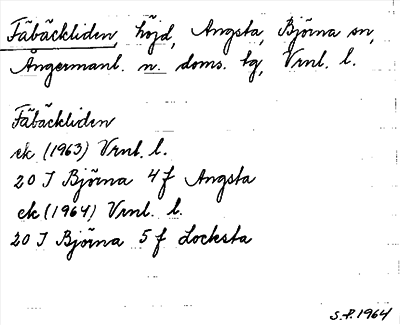 Fäbäckliden, höjd, Angsta, Björna sn,
Ångermanl. n. doms. tg, Vrnl. l.
Fäbäckliden
ek (1963) Vrnl. l.
20 J Björna 4 f Angsta
ek (1964) Vrnl. l.
20 J Björna 5 f Locksta
S.P. 1964